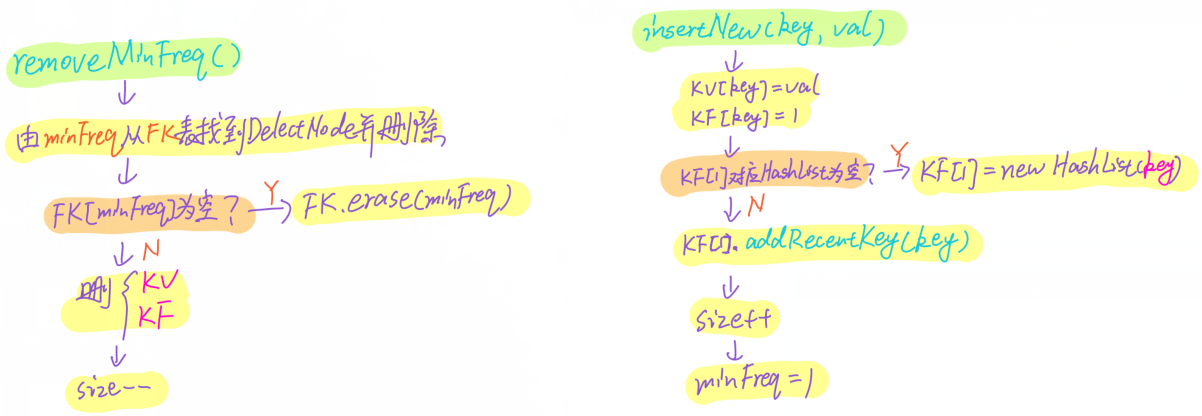 removeMinFreq()
由minFreq从FK表找到DelectNode并删除
FK[minFreq]为空?
Y
FK.erase(minFreq)
N
删 { KV
KF
size--
insertNew(key, val)
KV[key]=val
KF[key]=1
KF[1]对应HashList为空?
Y
KF[1]=new HashList(key)
N
KF[1].addRecentKey(key)
size++
minFreq=1